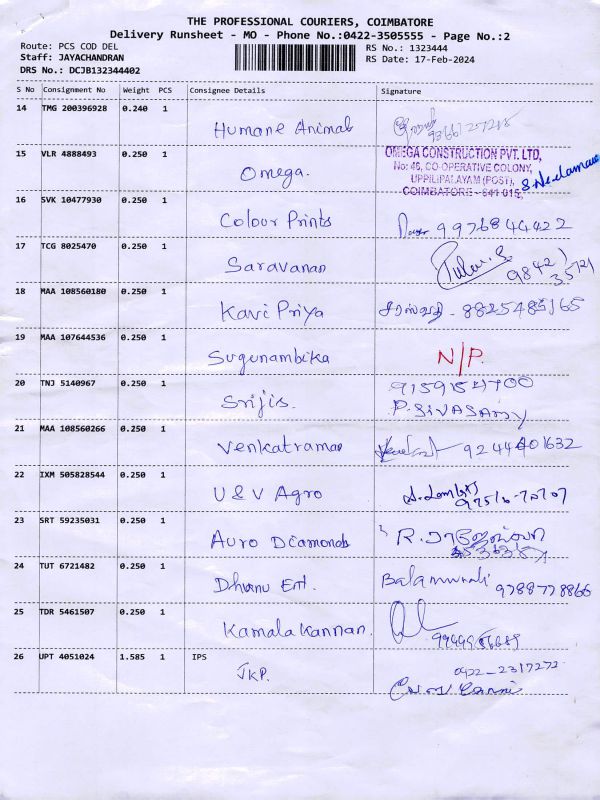 THE PROFESSIONAL COURIERS, COIMBATORE
Delivery Runsheet - MO - Phone No.:0422-3505555 - Page No.:2
Route: PCS COD DEL RS No.: 1323444
Staff: JAYACHANDRAN RS Date: 17-Feb-2024
DRS No.: DCJB132344402
S No Consignment No Weight PCS Consignee Details Signature
14 TMG 200396928 0.240 1 Humane Animal
15 VLR 4888493 0.250 1 Omega.
OMEGA CONSTRUCTION PVT. LTD,
No: 46, CO-OPERATIVE COLONY,
UPPILIPALAYAM (POST),
COIMBATORE - 641 015.
16 SVK 10477930 0.250 1 Colour Prints 9976844422
17 TCG 8025470 0.250 1 Saravanan
18 MAA 108560180 0.250 1 Kavi Priya சரஸ்வதி - 8825485165
19 MAA 107644536 0.250 1 Sugunambika N/P.
20 TNJ 5140967 0.250 1 Srijis. 9159154700
P. SIVASAMY
21 MAA 108560266 0.250 1 Venkatraman 9244401632
22 IXM 505828544 0.250 1 U & V Agro
23 SRT 59235031 0.250 1 Auro Diamonds R.
24 TUT 6721482 0.250 1 Dhanu Ent. Balamurali 9788778866
25 TDR 5461507 0.250 1 Kamala Kannan.
26 UPT 4051024 1.585 1 IPS
JKP. 0422-2317272